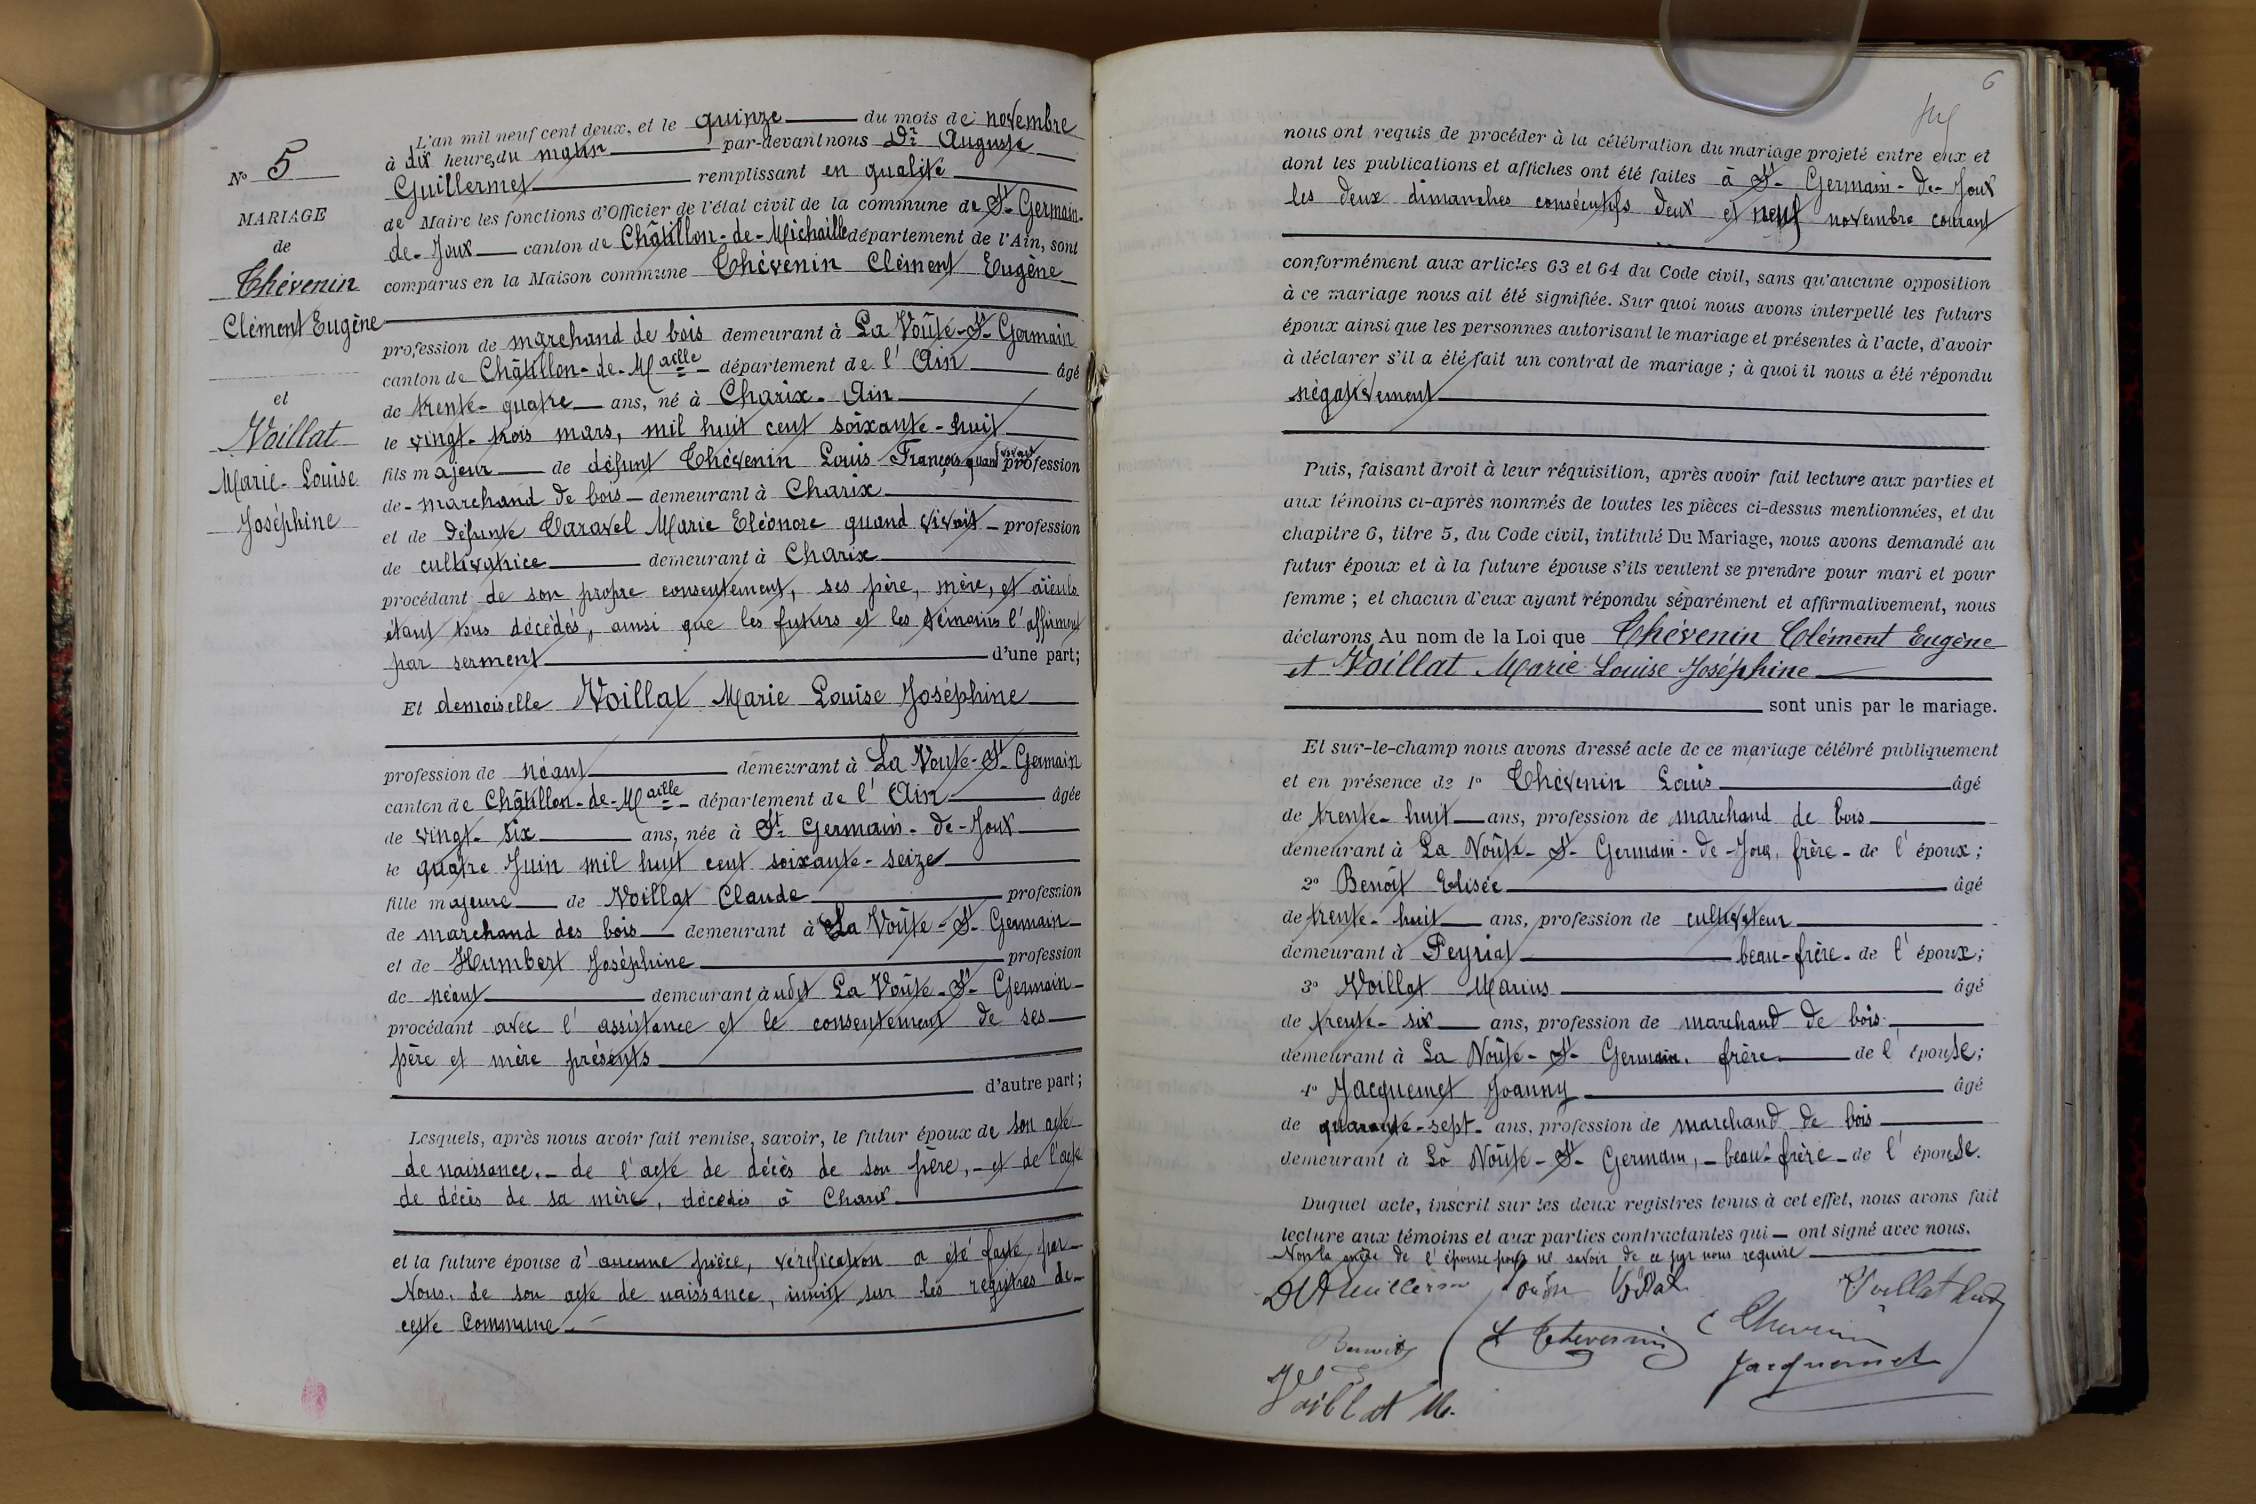 N° 5
MARIAGE
de
Thévenin
Clément Eugène
et
Voillat
Marie-Louise
Joséphine
L'an mil neuf cent deux, et le quinze du mois de novembre
à dix heures du matin par-devant nous Dr Auguste
Guillermet remplissant en qualité
de Maire les fonctions d'Officier de l'état civil de la commune de St-Germain-
de-Joux canton de Châtillon-de-Michaille département de l'Ain, sont
comparus en la Maison commune Thévenin Clément Eugène
profession de marchand de bois demeurant à La Voûte-St-Germain
canton de Châtillon-de-Maille département de l'Ain âgé
de trente-quatre ans, né à Charix-Ain
le vingt-trois mars, mil huit cent soixante-huit
fils majeur de défunt Thévenin Louis François quand vivait profession
de marchand de bois demeurant à Charix
et de défunte Caravel Marie Eléonore quand vivait profession
de cultivatrice demeurant à Charix
procédant de son propre consentement, ses père, mère, et aïeuls
étant tous décédés, ainsi que les futurs et les témoins l'affirment
par serment d'une part;
Et demoiselle Voillat Marie Louise Joséphine
profession de néant demeurant à La Voute-St-Germain
canton de Châtillon-de-Maille département de l'Ain âgée
de vingt-six ans, née à St-Germain-de-Joux
le quatre Juin mil huit cent soixante-seize
fille majeure de Voillat Claude profession
de marchand des bois demeurant à La Voûte-St-Germain
et de Humbert Joséphine profession
de néant demeurant à udit La Voûte-St-Germain
procédant avec l'assistance et le consentement de ses
père et mère présents
d'autre part;
Lesquels, après nous avoir fait remise, savoir, le futur époux de son acte
de naissance.- de l'acte de décès de son père,- et de l'acte
de décès de sa mère, décédés à Charix
et la future épouse d'aucune pièce, vérification a été faite par
Nous, de son acte de naissance, inscrit sur les registres de
cette Commune.
6
nous ont requis de procéder à la célébration du mariage projeté entre eux et
dont les publications et affiches ont été faites à St-Germain-de-Joux
les deux dimanches consécutifs deux et neuf novembre courant
conformément aux articles 63 et 64 du Code civil, sans qu'aucune opposition
à ce mariage nous ait été signifiée. Sur quoi nous avons interpellé les futurs
époux ainsi que les personnes autorisant le mariage et présentes à l'acte, d'avoir
à déclarer s'il a été fait un contrat de mariage; à quoi il nous a été répondu
négativement
Puis, faisant droit à leur réquisition, après avoir fait lecture aux parties et
aux témoins ci-après nommés de toutes les pièces ci-dessus mentionnées, et du
chapitre 6, titre 5, du Code civil, intitulé Du Mariage, nous avons demandé au
futur époux et à la future épouse s'ils veulent se prendre pour mari et pour
femme; et chacun d'eux ayant répondu séparément et affirmativement, nous
déclarons Au nom de la Loi que Thévenin Clément Eugène
et Voillat Marie Louise Joséphine
sont unis par le mariage.
Et sur-le-champ nous avons dressé acte de ce mariage célébré publiquement
et en présence de 1° Thévenin Louis âgé
de trente-huit ans, profession de marchand de bois
demeurant à La Voûte-St-Germain-de-Joux, frère de l'époux;
2° Benoît Elisée âgé
de trente-huit ans, profession de cultivateur
demeurant à Peyriat beau-frère de l'époux;
3° Voillat Marius âgé
de trente-six ans, profession de marchand de bois
demeurant à La Voûte-St-Germain, frère de l'épouse;
4° Jacquemet Joanny âgé
de quarante-sept ans, profession de marchand de bois
demeurant à La Voûte-St-Germain,- beau-frère de l'épouse.
Duquel acte, inscrit sur les deux registres tenus à cet effet, nous avons fait
lecture aux témoins et aux parties contractantes qui ont signé avec nous.
Non la mère de l'épouse pour ne savoir de ce par nous requise
Voillat
Benoit
L Thevenin
C Thevenin
Jacquemet
Voillat M.